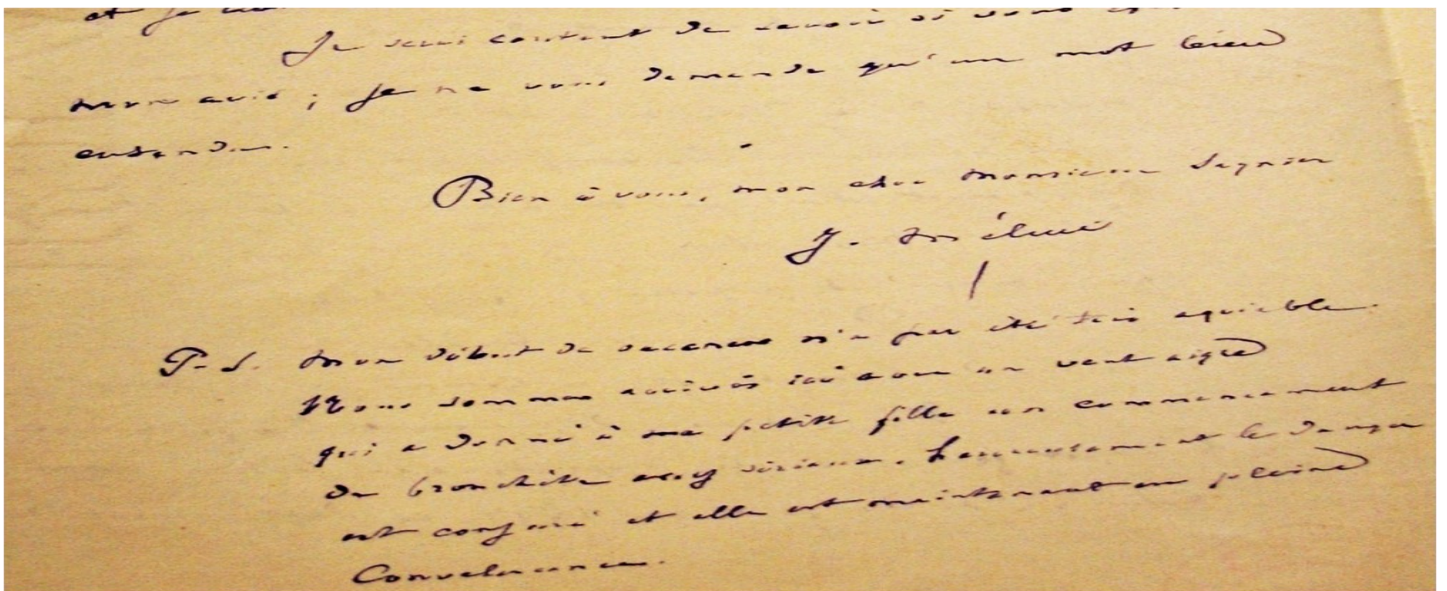 et je
Je serai content de savoir si vous
mon avis ; je ne vous demande qu'un mot bien
entendu.
Bien à vous, mon cher Monsieur
J. Méline
P.S. Mon début de vacances n'a pas été très agréable.
Nous sommes arrivés ici avec un vent aigre
qui a donné à ma petite fille un commencement
de bronchite assez sérieux. Heureusement le danger
est conjuré et elle est maintenant en pleine
Convalescence.